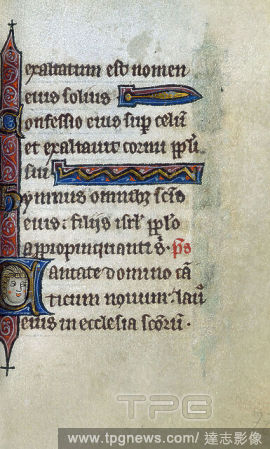 exaltatum est nomen
eius solius
Confessio eius sup celũ
et exaltauit cornu ppl'i
sui
Hymnus omnibȝ scĩs
eius : filijs isrl' pplo
appropinquanti s̃ . ps
Cantate domino cã
ticum nouum : lauˢ
eius in ecclesia scõrũ .
TPG
www.tpgnews.com/ 達志影像